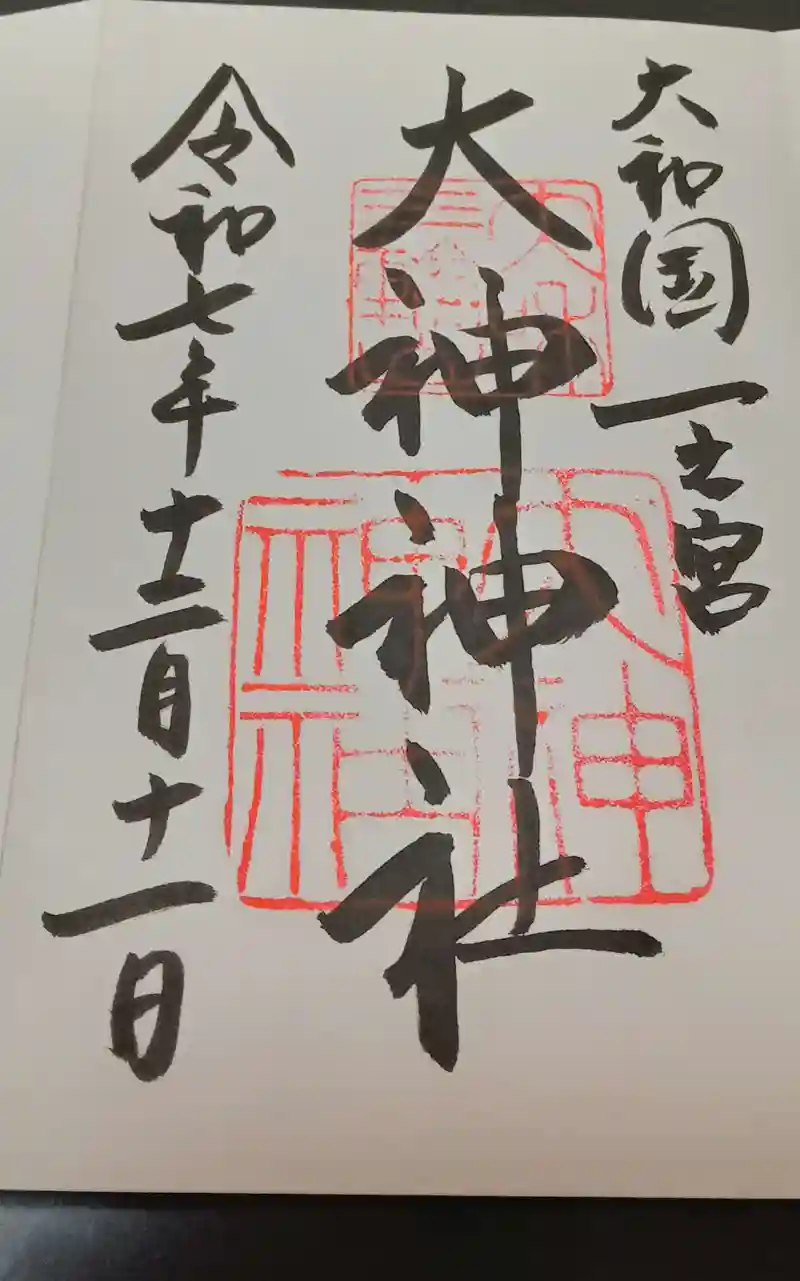 大和国一之宮
大神神社
令和七年十二月十一日